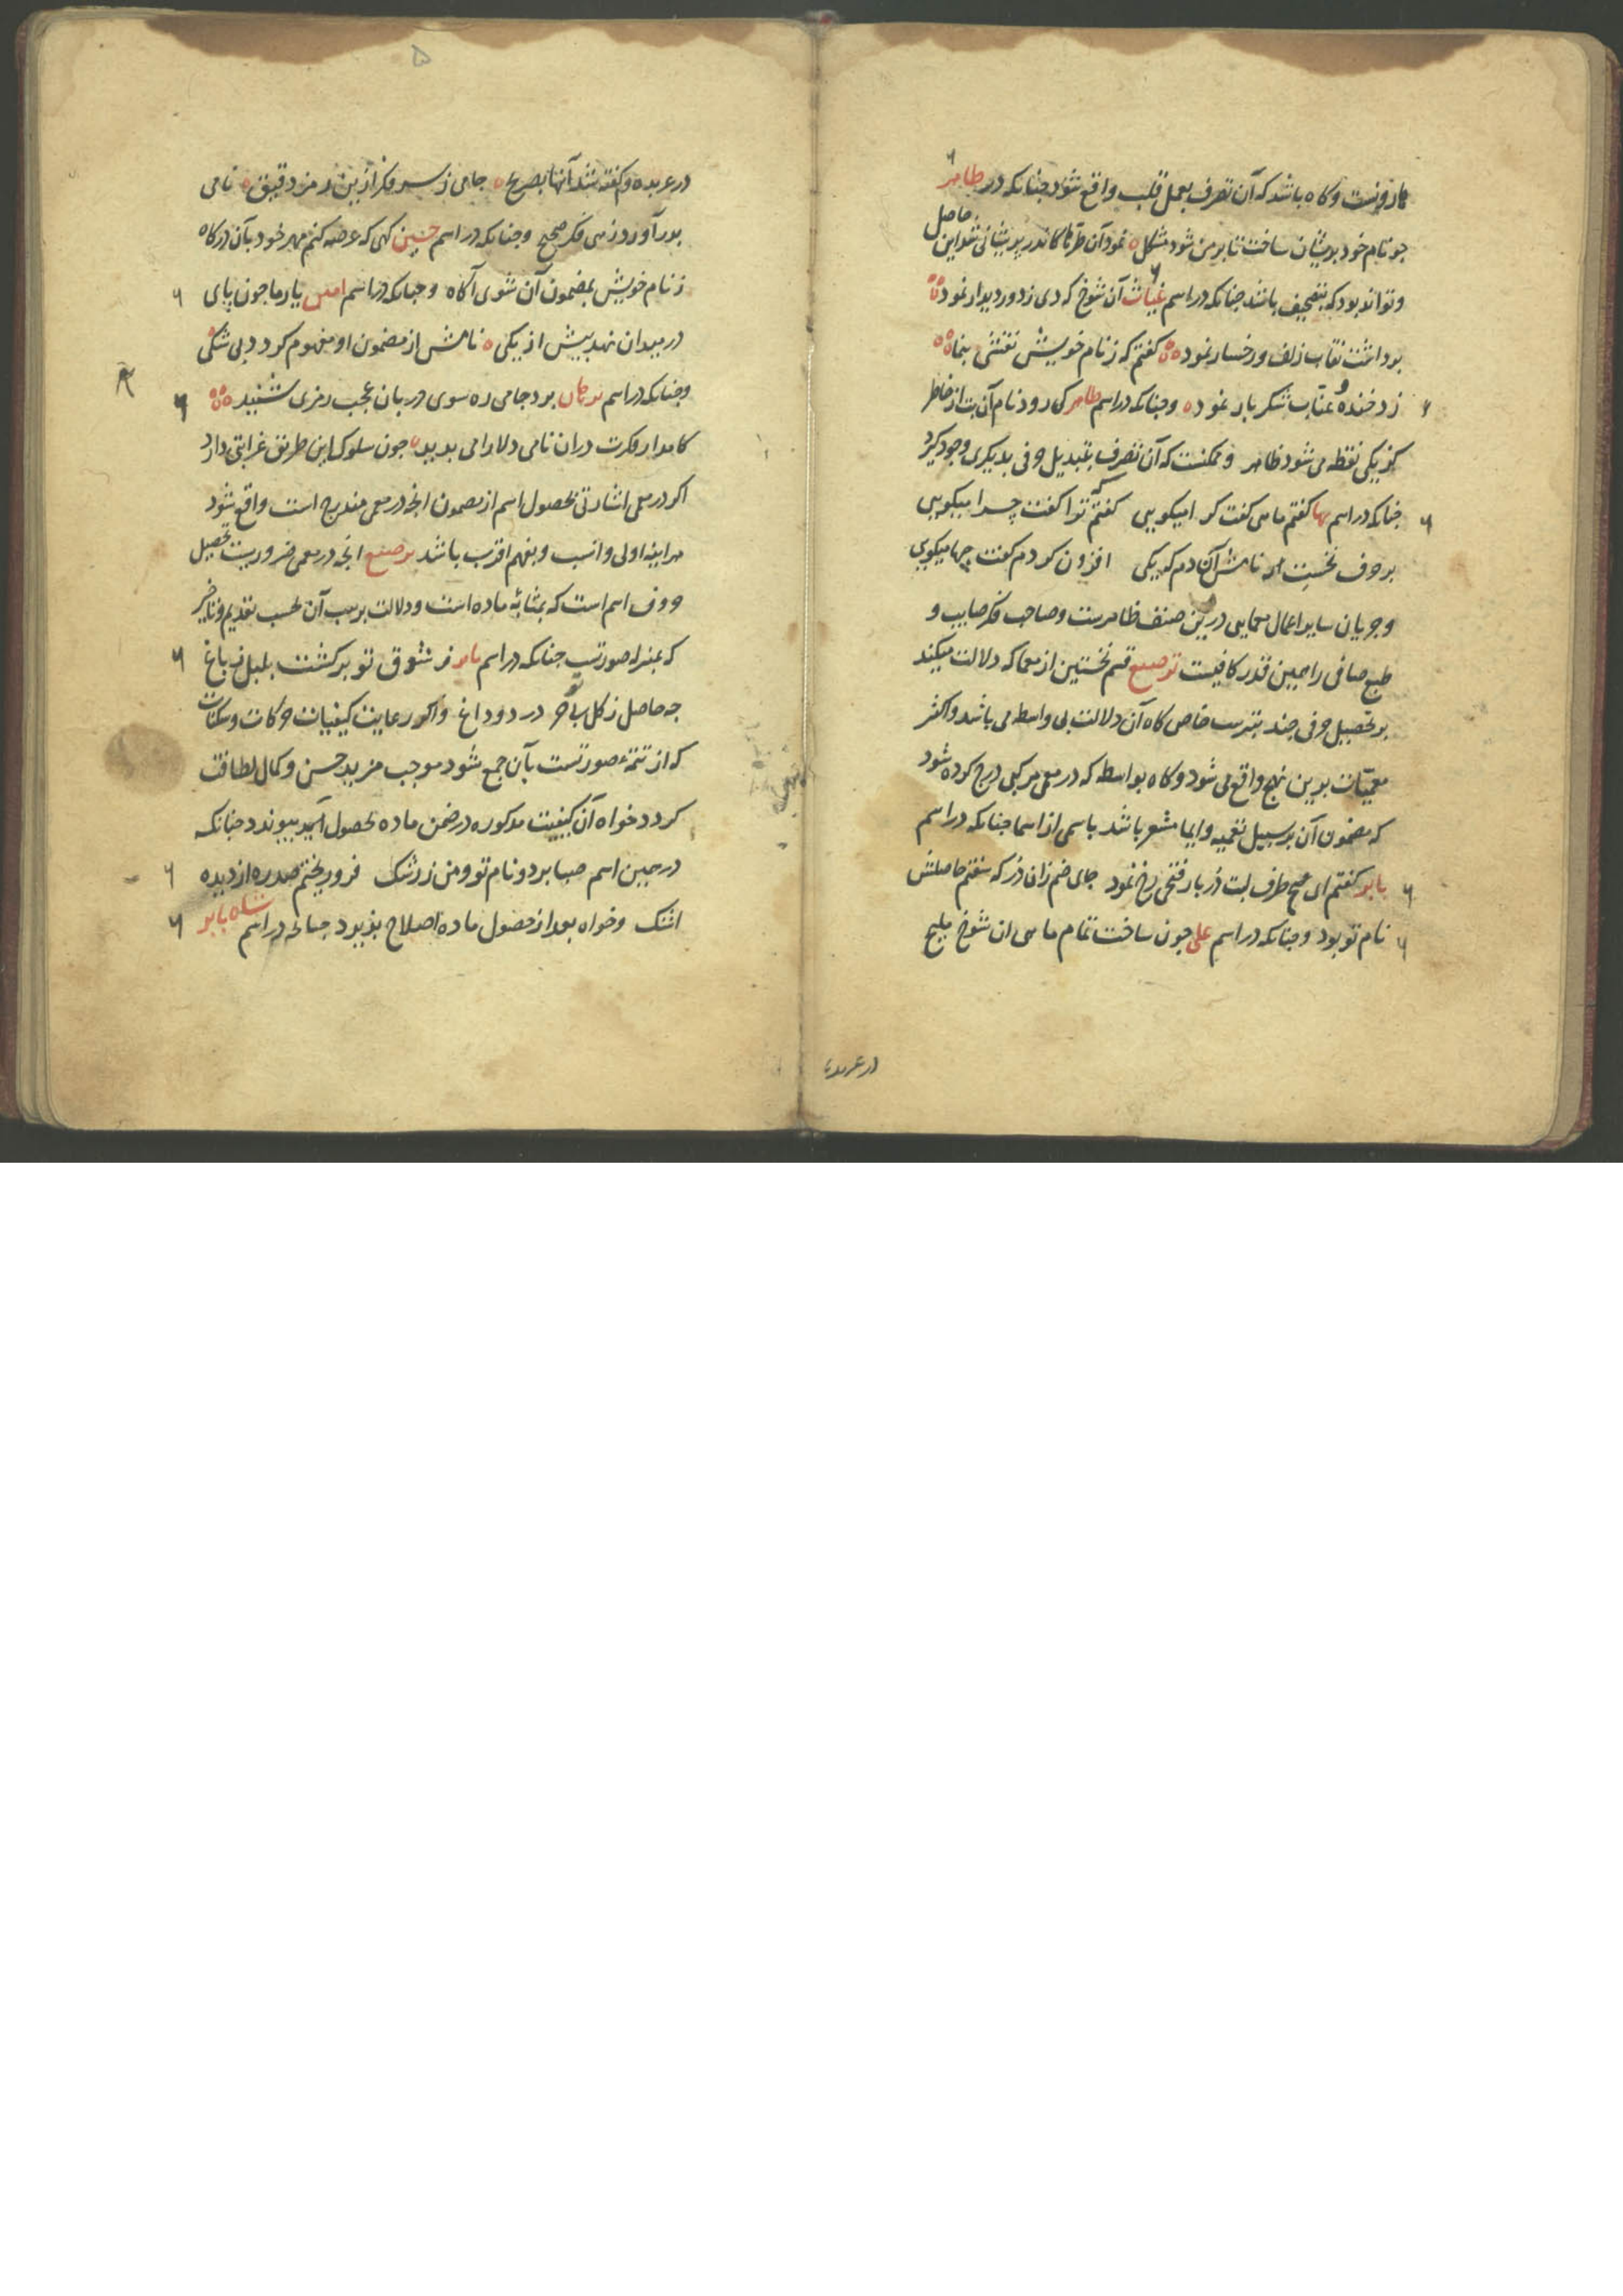 و گاه باشد که آن تصرف بعمل قلب واقع شود چنانکه در طاهر
جو نام خود پریشان ساخت تا بر من شود مشکل نمود آن طرّها کاندر پریشانی شد این حاصل
و تواند بود که بتصحیف باشد چنانکه در اسم غیاث آن شوخ که دی ز دور دیدار نمود
برداشت نقاب زلف و رخسار نمود گفتم که ز نام خویش نقشی بنما
زد خنده و عتاب شکر بار نمود و چنانکه در اسم طاهر کی رود نام آن بت از خاطر
کز یکی نقطه می شود ظاهر و ممکنست که آن تصرف بتبدیل حرفی بدیگری وجود گیرد
چنانکه در اسم بها گفتم ماهی گفت کرا میگویی گفتم که ترا گفت چرا میگویی
بر حرف نخست نامش آن دم که یکی افزون کردم گفت چها میگویی
و جریان سایر اعمال معمایی درین صنف ظاهرست و صاحب فکر صایب و
طبع صافی را همین قدر کافیست توصیع قسم نخستین از معما که دلالت میکند
بر تحصیل حرفی چند بترتیب خاص گاه آن دلالت بی واسطه می باشد و اکثر
معمیّات بدین نهج واقع می شود و گاه بواسطه که در معمی مرکبی درج کرده شود
که مضمون آن بر سبیل تعمیه و ایما مشعر باشد باسمی از اسما چنانکه در اسم
بابر گفتم ای هیچ طرف لبت دُر بار فتحی رخ نمود جای ضم زان دُر که سفتم حاصلش
نام تو بود و چنانکه در اسم علی چون ساخت تمام ماهی ان شوخ ملیح
در عربده
در عربده و گفته شد آنها بصریح جامی ز سر فکر ازین رمز دقیق نامی
بدر آورد زهی فکر صحیح و چنانکه در اسم حسین گهی که عرضه کنم مهر خود بآن درگاه
ز نام خویش بمضمون آن شوی آگاه و چنانکه در اسم امین یار ما چون پای
در میدان نهد پیش از یکی نامش از مضمون او مفهوم گردد بی شکی
و چنانکه در اسم برد جامی ره سوی دربان عجب رمزی شنید
کامد از فکرت در ان نامی دلارامی پدید چون سلوک این طریق غرابتی دارد
اگر در معمی اشارتی بحصول اسم از مضمون انچه در معمی مندرج است واقع شود
هر اینه اولی و انسب و بفهم اقرب باشد توصیع انچه در معمی ضروریست تحصیل
حروف اسم است که بمثابهٔ ماده است و دلالت بر ترتیب آن بحسب تقدیم و تاخیر
که بمنزلهٔ صورتست چنانکه در اسم بابر ز شوق تو برگشت بلبل ز باغ
چه حاصل ز گل بی تو جز درد و داغ و اگر رعایت کیفیات حرکات و سکنات
که از تتمهٔ صورتست بآن جمع شود موجب مزید حسن و کمال لطافت
گردد خواه آن کیفیت مذکوره در ضمن ماده بحصول پیوندد چنانکه
در همین اسم صبا برد نام تو و من ز رشک فرو ریختم صد ره از دیده
اشک و خواه بعد از حصول ماده اصلاح پذیرد چنانکه در اسم شاه بابر